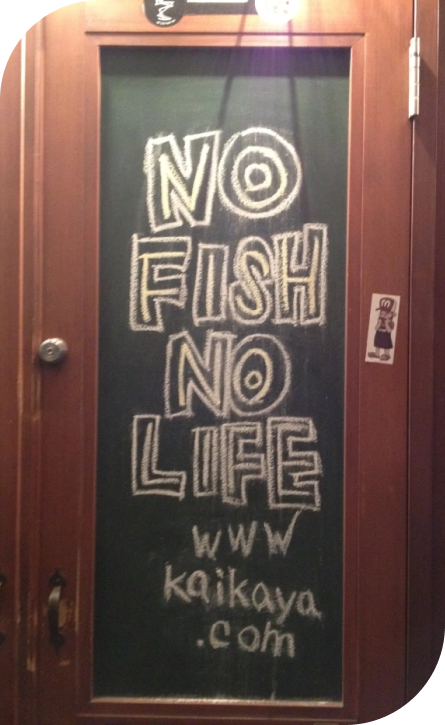 NO
FISH
NO
LIFE
www
kaikaya
.com